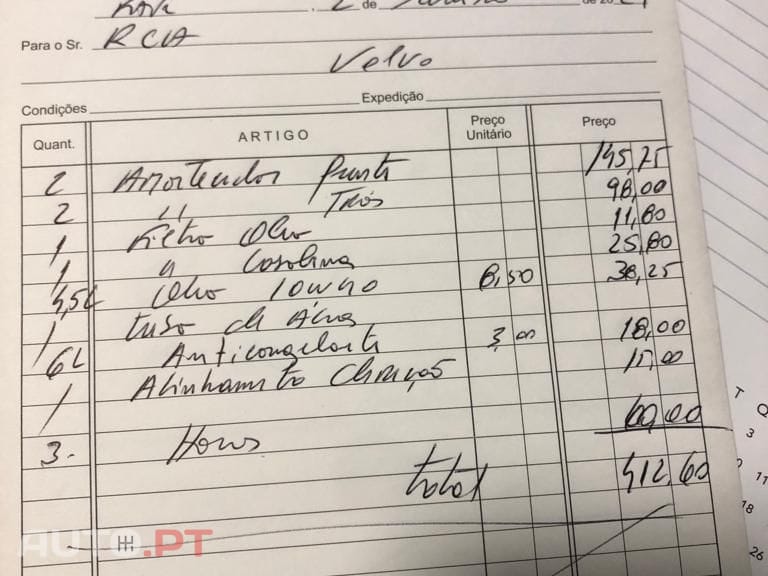 2 de
de 20
Para o Sr. RCIA
Volvo
Condições Expedição
Quant. ARTIGO Preço Unitário Preço
2 Amortecedor frente 145,75
2 " Trás 98,00
1 Filtro Oleo 11,80
1 " Gasolina 25,80
4,5L Oleo 10W40 8,50 38,25
1 tubo de Água
6L Anticongelante 3,00 18,00
1 Alinhamento Direcção 15,00
3- Horas 60,00
total 412,60
T
Q
3
11
18
26
AUTO.PT